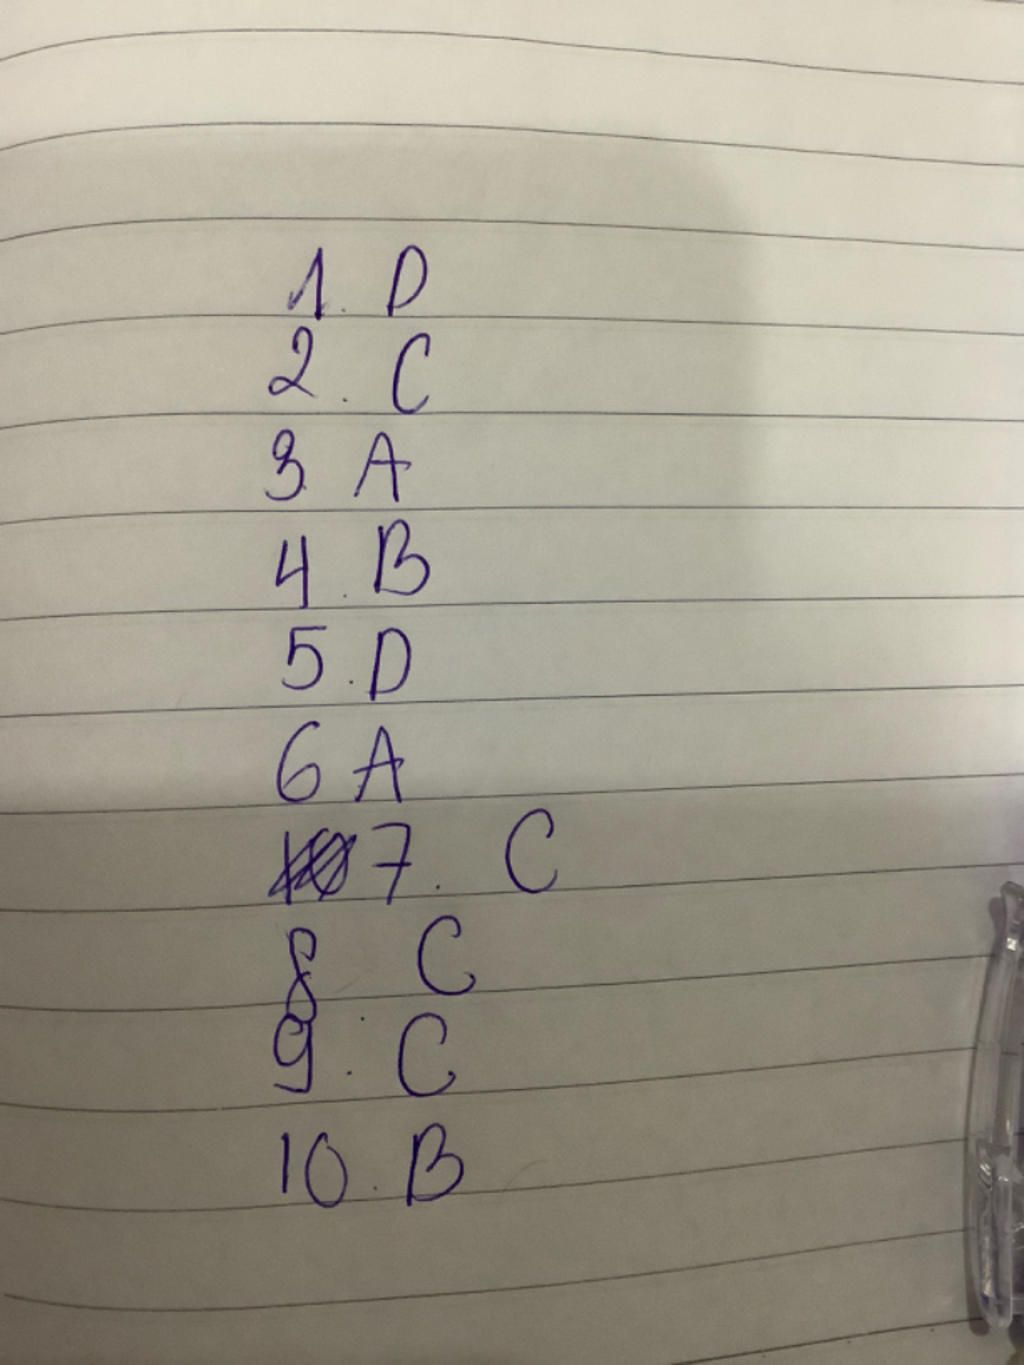 1. D
2. C
3 A
4. B
5. D
6 A
7. C
8 C
9. C
10. B